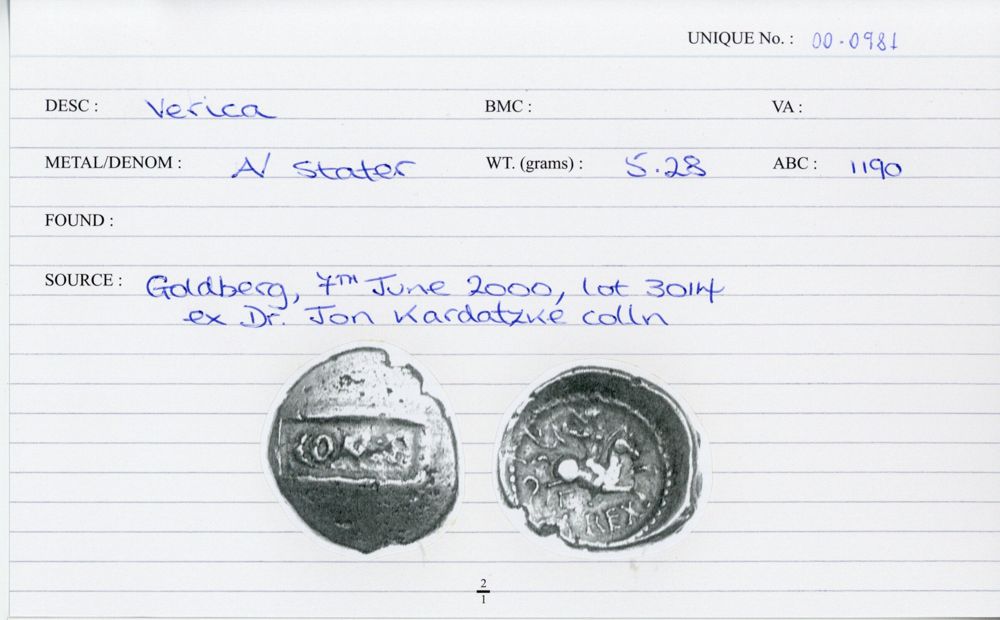 UNIQUE No. : 00-0981
DESC : Verica BMC : VA :
METAL/DENOM : A/ Stater WT. (grams) : 5.28 ABC : 1190
FOUND :
SOURCE : Goldberg, 7TH June 2000, lot 3014
ex Dr. Jon Kardatzke colln
REX
2
1